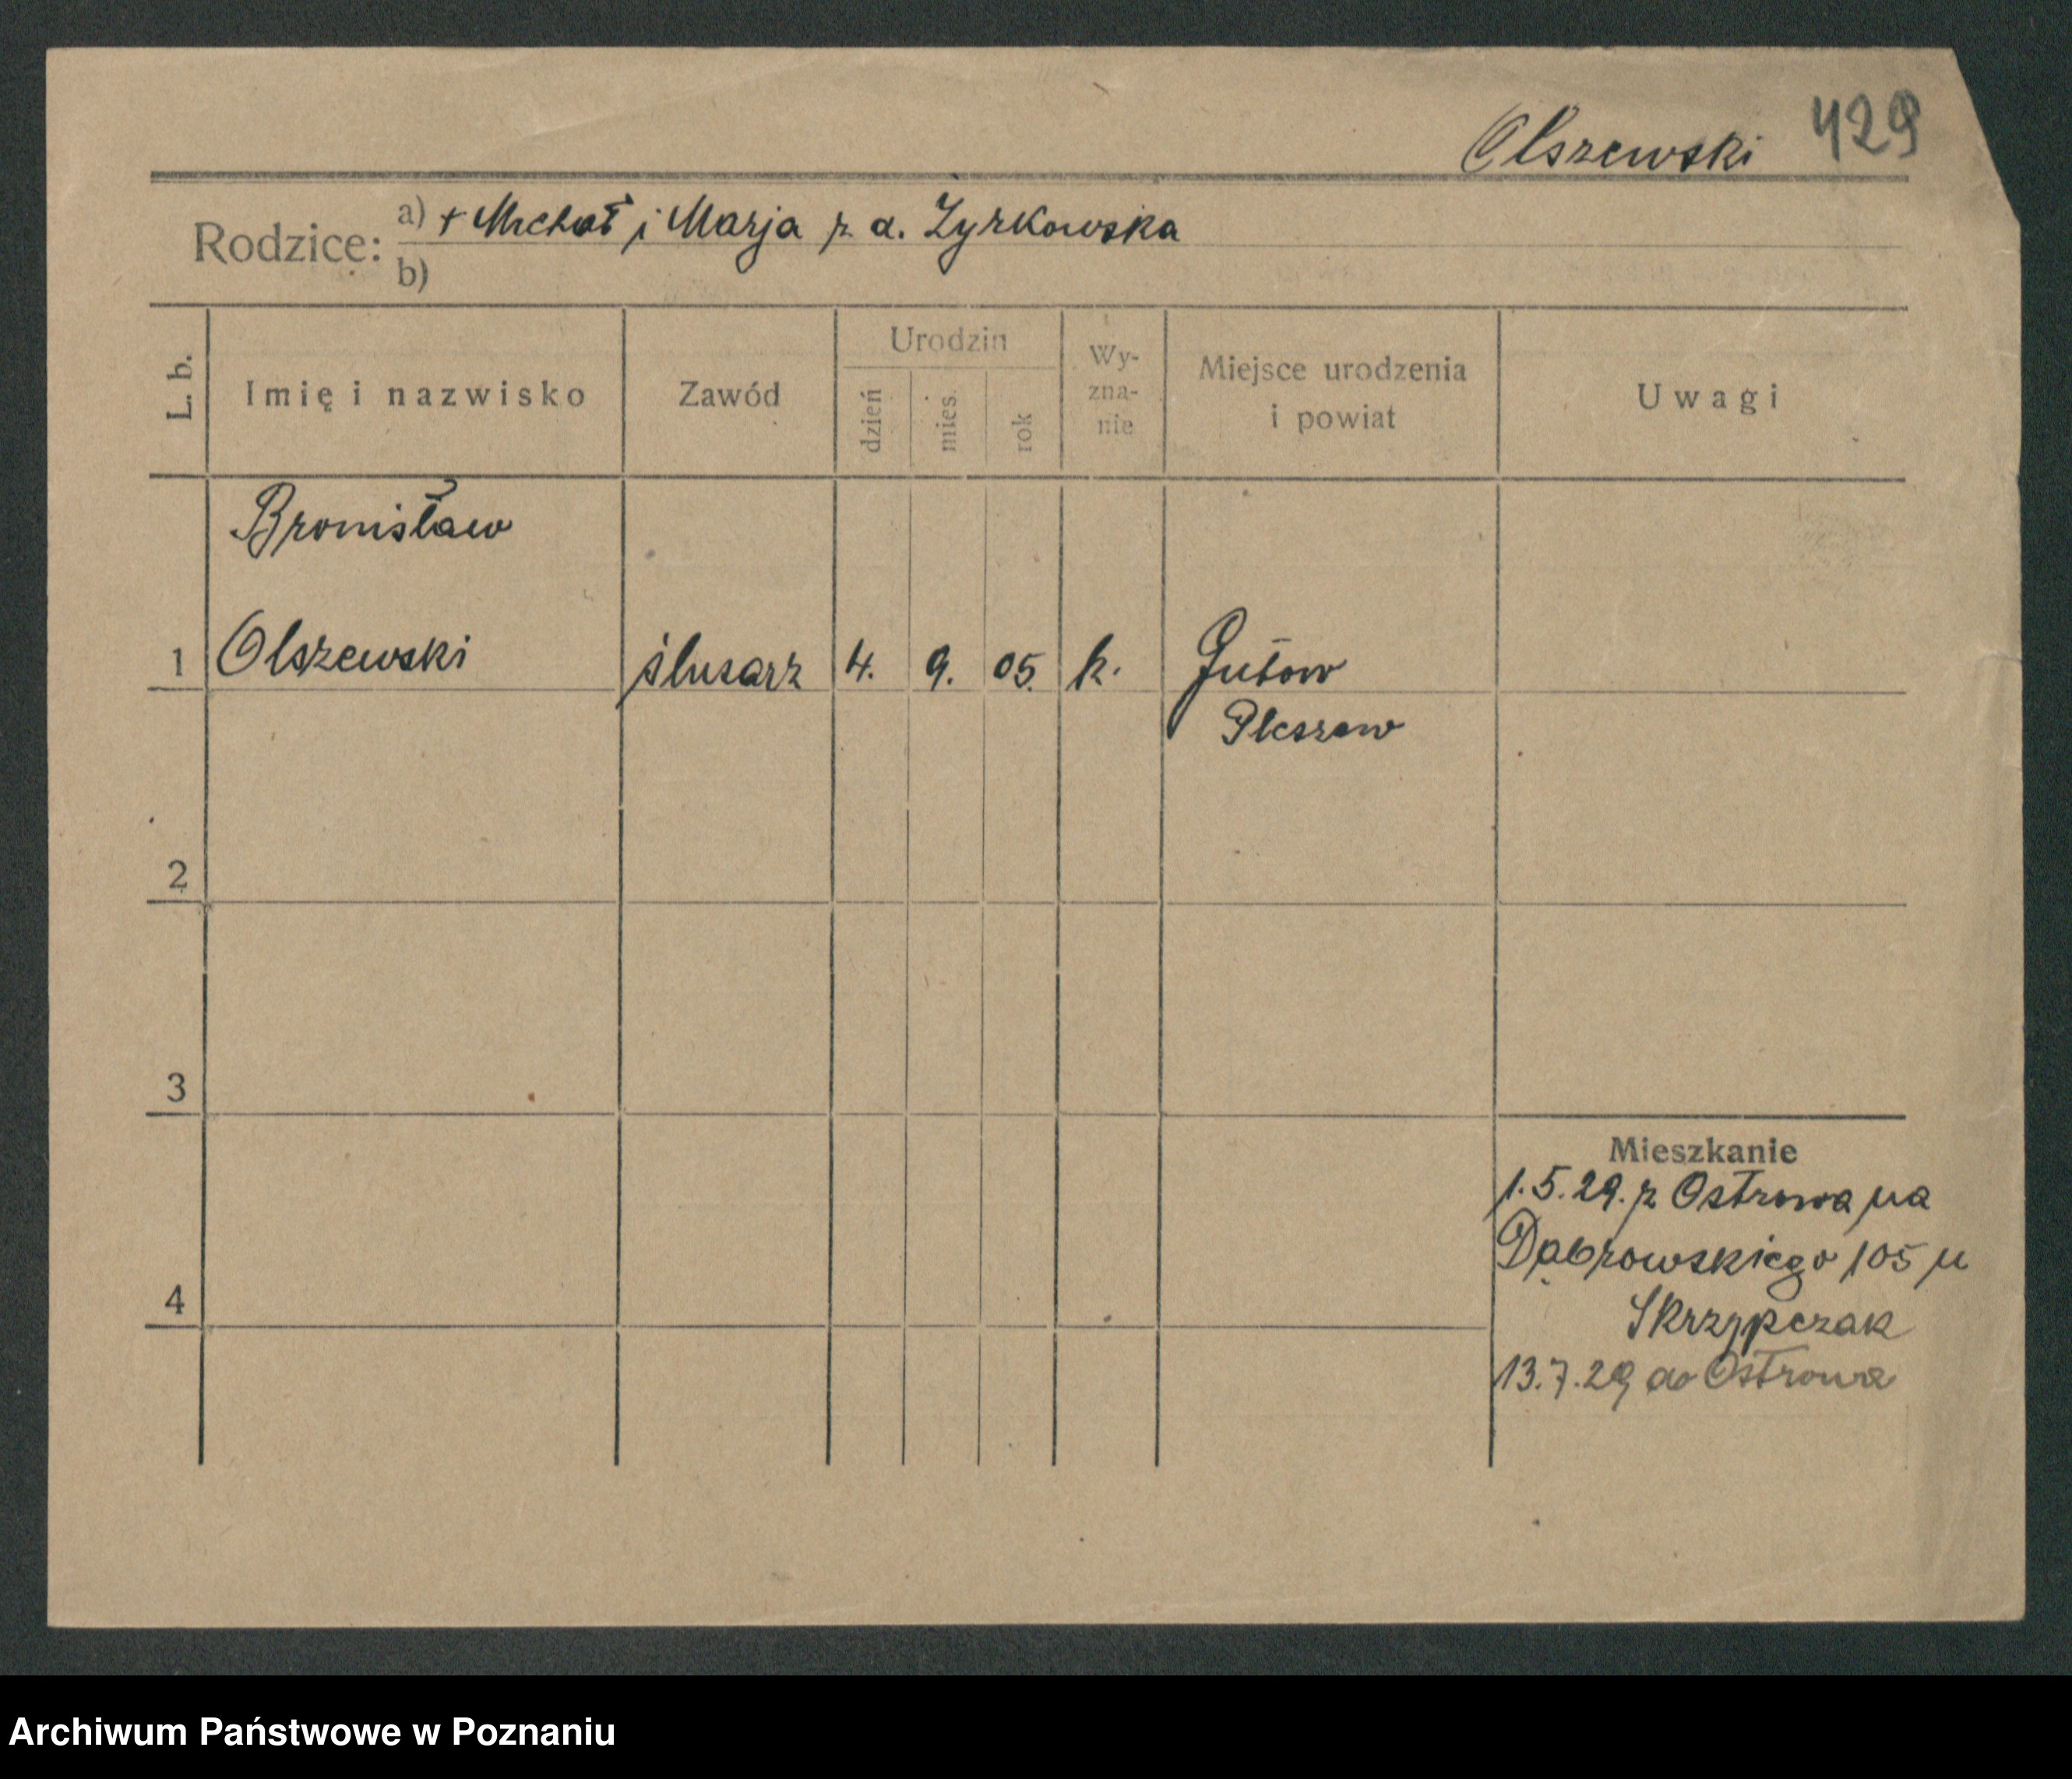 Olszewski 429
Rodzice: a) + Michał i Marja z d. Żyrkowska
b)
L. b.
Imię i nazwisko
Zawód
Urodzin
dzień
mies.
rok
Wy-
zna-
nie
Miejsce urodzenia
i powiat
Uwagi
Bronisław
1 Olszewski ślusarz 4. 9. 05. k. Gutow
Pleszew
2
3
Mieszkanie
1.5.29. z Ostrowa na
Dąbrowskiego 105 u
4
Skrzypczak
13.7.29 do Ostrowa
Archiwum Państwowe w Poznaniu